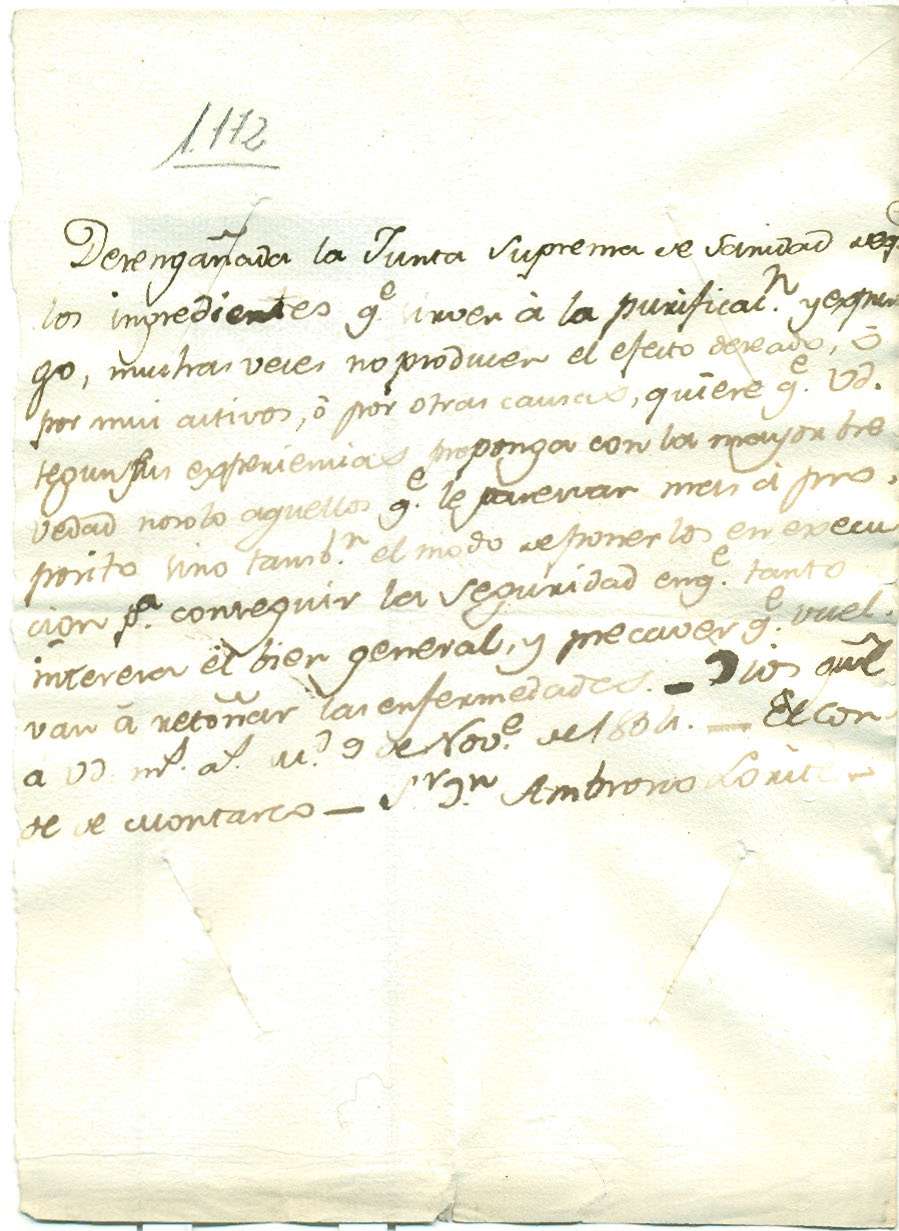 1.172
Desengañada la Junta Suprema de Sanidad de q.
los ingredientes q.e sirven à la purificac.n y expur
go, muchas veces no producen el efecto deseado, ò
por mui activos, ò por otras causas, quiere q.e Vd.
segun sus experiencias proponga con la mayor bre
vedad no solo aquellos q.e le parezcan mas à pro-
posito sino tamb.n el modo de ponerlos en execu
cion p.a conseguir la seguridad en q.e tanto
interesa el bien general, y precaver q.e vuel-
van à retoñar las enfermedades. — Dios gu.e
a Vd. m.s a.s M.d 9 de Nov.e de 1804. — El Con
de de Montarco — S.r D.n Ambrosio Lorite